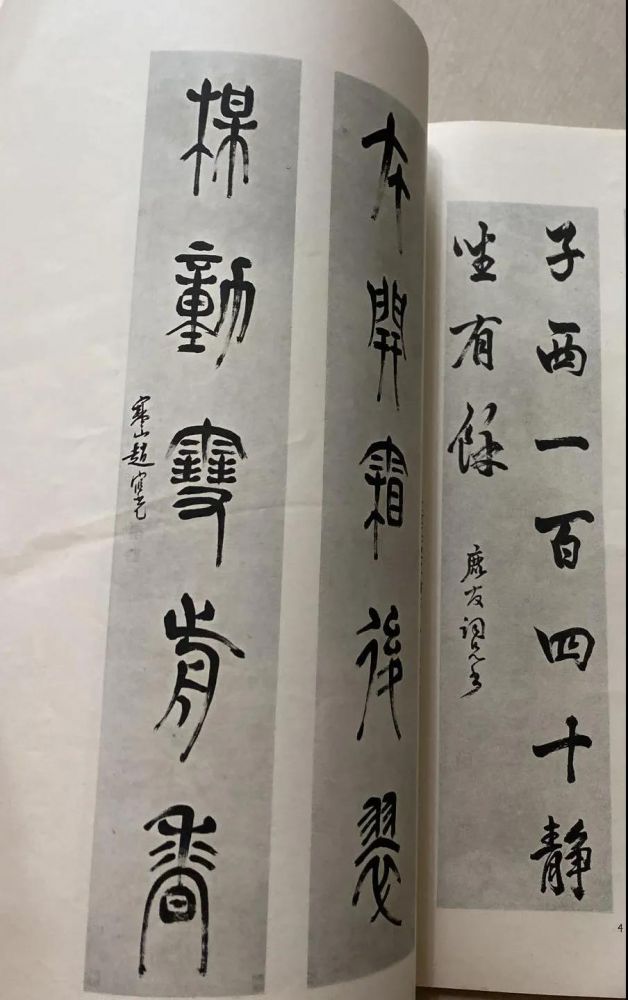 子西一百四十静
坐有餘
鹿友詞兄
竹開霜後翠
梅動雪前香
寒山趙宧光